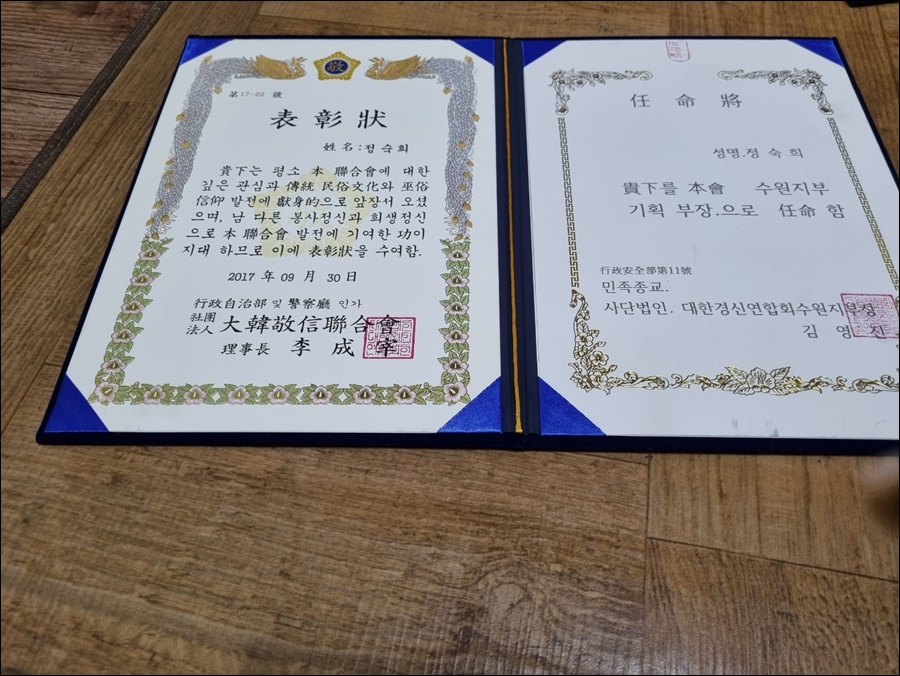 敬
第17-22 號
表彰狀
姓名:정숙희
貴下는 평소 本 聯合會에 대한
깊은 관심과 傳統 民俗文化와 巫俗
信仰 발전에 獻身的으로 앞장서 오셨
으며, 남 다른 봉사정신과 희생정신
으로 本 聯合會 발전에 기여한 功이
지대 하므로 이에 表彰狀을 수여함.
2017 年 09 月 30 日
行政自治部 및 警察廳 인가
社團法人 大韓敬信聯合會
理事長 李成宰
任命將
성명.정 숙 희
貴下를 本會 수원지부
기획 부장.으로 任命 함
行政安全部第11號
민족종교.
사단법인. 대한경신연합회수원지부장
김 영 진